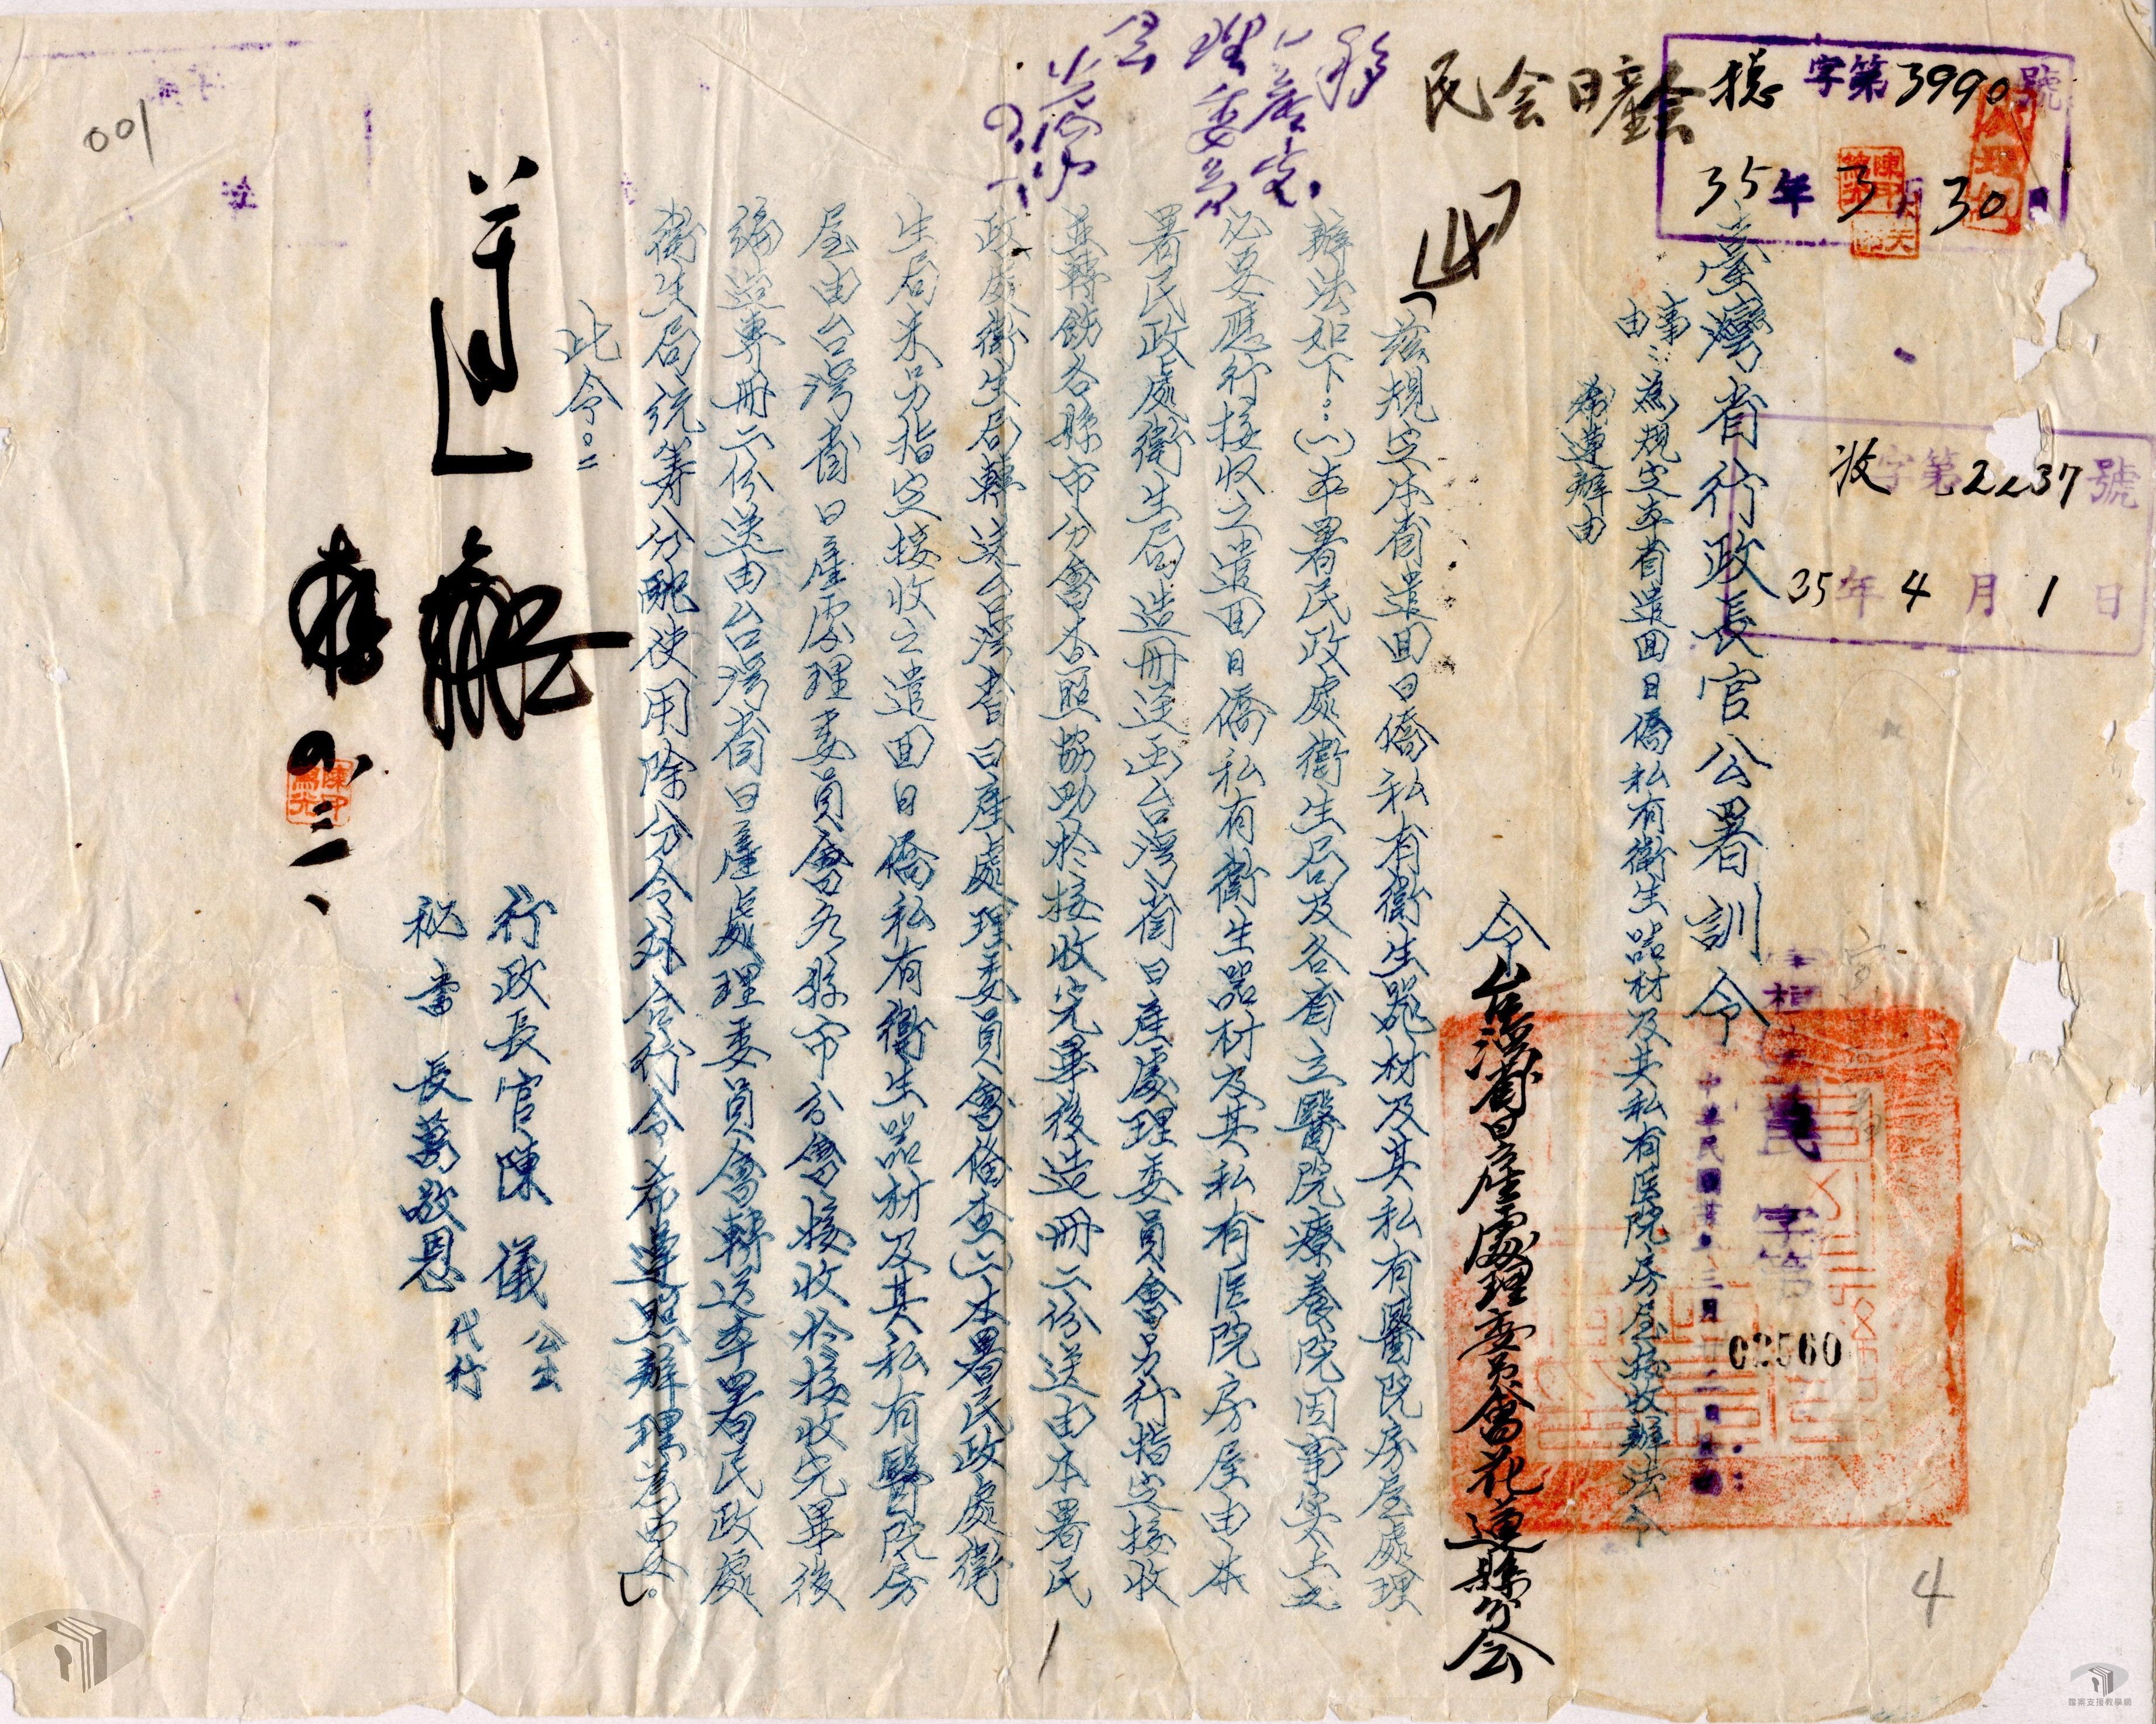 總字第3990號
35年3月30日
收字第2237號
35年4月1日
民会日產会
臺灣省行政長官公署訓令
民字第 02560
事由：為規定本省遣回日僑私有衛生器材及其私有医院房屋接收辦法令
希遵辦由
令台灣省日產處理委員會花蓮縣分会
「茲規定本省遣回日僑私有衛生器材及其私有醫院房屋處理
辦法如下：(一)本署民政處衛生局及各省立醫院療養院因事实上之
必要應行接收之遣回日僑私有衛生器材及其私有医院房屋由本
署民政處衛生局造冊送函台灣省日產處理委員會另行指定接收
並轉飭各縣市分會查照協助於接收完畢後造冊二份送由本署民
政處衛生局轉送台灣省日產處理委員會備查(二)本署民政處衛
生局未另指定接收之遣回日僑私有衛生器材及其私有醫院房
屋由台灣省日產處理委員會各縣市分會接收於接收完畢後
編造專冊二份送由台灣省日產處理委員會轉送本署民政處
衛生局統籌分配使用除分令外合行令希遵照辦理為要」。
此令。
行政長官陳儀 公出
秘書長葛敬恩 代行
001
4
1
檔案支援教學網